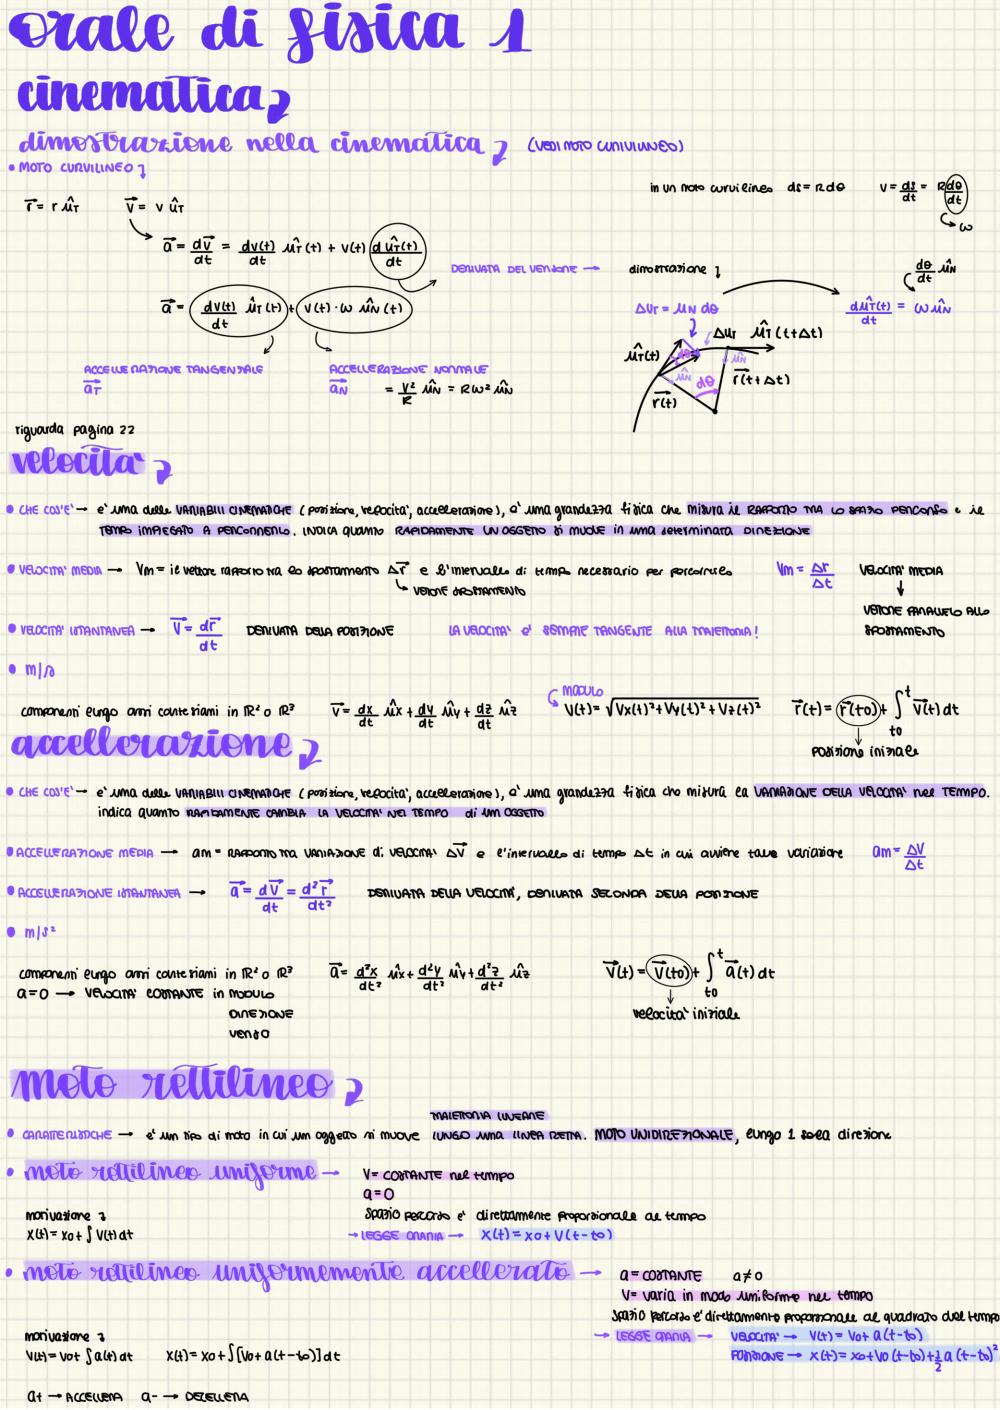 orale di fisica 1
cinematica
dimostrazione nella cinematica (VEDI MOTO CURVILINEO)
• MOTO CURVILINEO
in un moto curvilineo ds = R dθ v = ds/dt = R dθ/dt
ω
r⃗ = r ûT v⃗ = v ûT
a⃗ = dv⃗/dt = dv(t)/dt ûT(t) + v(t) dûT(t)/dt
DERIVATA DEL VERSORE → dimostrazione
dθ/dt ûN
a⃗ = dv(t)/dt ûT(t) + v(t)·ω ûN(t)
ΔuT = uN dθ
dûT(t)/dt = ω ûN
ΔuT ûT(t+Δt)
ûT(t) dθ ûN ûN
dθ r⃗(t+Δt)
r⃗(t)
ACCELLERAZIONE TANGENZIALE ACCELLERAZIONE NORMALE
a⃗T a⃗N = v²/R ûN = Rω² ûN
riguarda pagina 22
velocita'
• CHE COS'E' → e' una delle VARIABILI CINEMATICHE (posizione, velocita', accellerazione), e' una grandezza fisica che misura il RAPPORTO TRA LO SPAZIO PERCORSO e il
TEMPO IMPIEGATO A PERCORRERLO. INDICA quanto RAPIDAMENTE UN OGGETTO SI MUOVE in una determinata DIREZIONE
• VELOCITA' MEDIA → Vm = il vettore rapporto tra lo spostamento Δr⃗ e l'intervallo di tempo necessario per percorrerlo Vm = Δr/Δt VELOCITA' MEDIA
VETTORE SPOSTAMENTO
VETTORE PARALLELO ALLO
SPOSTAMENTO
• VELOCITA' ISTANTANEA → v⃗ = dr⃗/dt DERIVATA DELLA POSIZIONE LA VELOCITA' E' SEMPRE TANGENTE ALLA TRAIETTORIA!
• m/s
componenti lungo assi cartesiani in R² o R³ v⃗ = dx/dt ûx + dy/dt ûy + dz/dt ûz MODULO v(t) = √Vx(t)²+Vy(t)²+Vz(t)² r⃗(t) = r⃗(t0) + ∫t0 t v⃗(t) dt
posizione iniziale
accellerazione
• CHE COS'E' → e' una delle VARIABILI CINEMATICHE (posizione, velocita', accellerazione), e' una grandezza fisica che misura la VARIAZIONE DELLA VELOCITA' nel TEMPO.
indica quanto RAPIDAMENTE CAMBIA LA VELOCITA' NEL TEMPO di un OGGETTO
• ACCELLERAZIONE MEDIA → am = RAPPORTO TRA VARIAZIONE di VELOCITA' Δv⃗ e l'intervallo di tempo Δt in cui avviene tale variazione am = ΔV/Δt
• ACCELLERAZIONE ISTANTANEA → a⃗ = dv⃗/dt = d²r⃗/dt² DERIVATA DELLA VELOCITA', DERIVATA SECONDA DELLA POSIZIONE
• m/s²
componenti lungo assi cartesiani in R² o R³ a⃗ = d²x/dt² ûx + d²y/dt² ûy + d²z/dt² ûz v⃗(t) = v⃗(t0) + ∫t0 t a⃗(t) dt
a=0 → VELOCITA' COSTANTE in MODULO
DIREZIONE
VERSO
velocita' iniziale
moto rettilineo
TRAIETTORIA LINEARE
• CARATTERISTICHE → e' un tipo di moto in cui un oggetto si muove LUNGO una LINEA RETTA. MOTO UNIDIREZIONALE, lungo 1 sola direzione
• moto rettilineo uniforme → V = COSTANTE nel tempo
a=0
motivazione
spazio percorso e' direttamente proporzionale al tempo
x(t) = x0 + ∫ v(t) dt
→ LEGGE ORARIA → x(t) = x0 + V(t-t0)
• moto rettilineo uniformemente accellerato → a = COSTANTE a≠0
V = varia in modo uniforme nel tempo
spazio percorso e' direttamente proporzionale al quadrato del tempo
motivazione
→ LEGGE ORARIA → VELOCITA' → V(t) = V0 + a(t-t0)
V(t) = V0 + ∫ a(t) dt x(t) = x0 + ∫[V0 + a(t-t0)] dt
POSIZIONE → x(t) = x0 + V0(t-t0) + ½ a (t-t0)²
a+ → ACCELLERA a- → DECELLERA